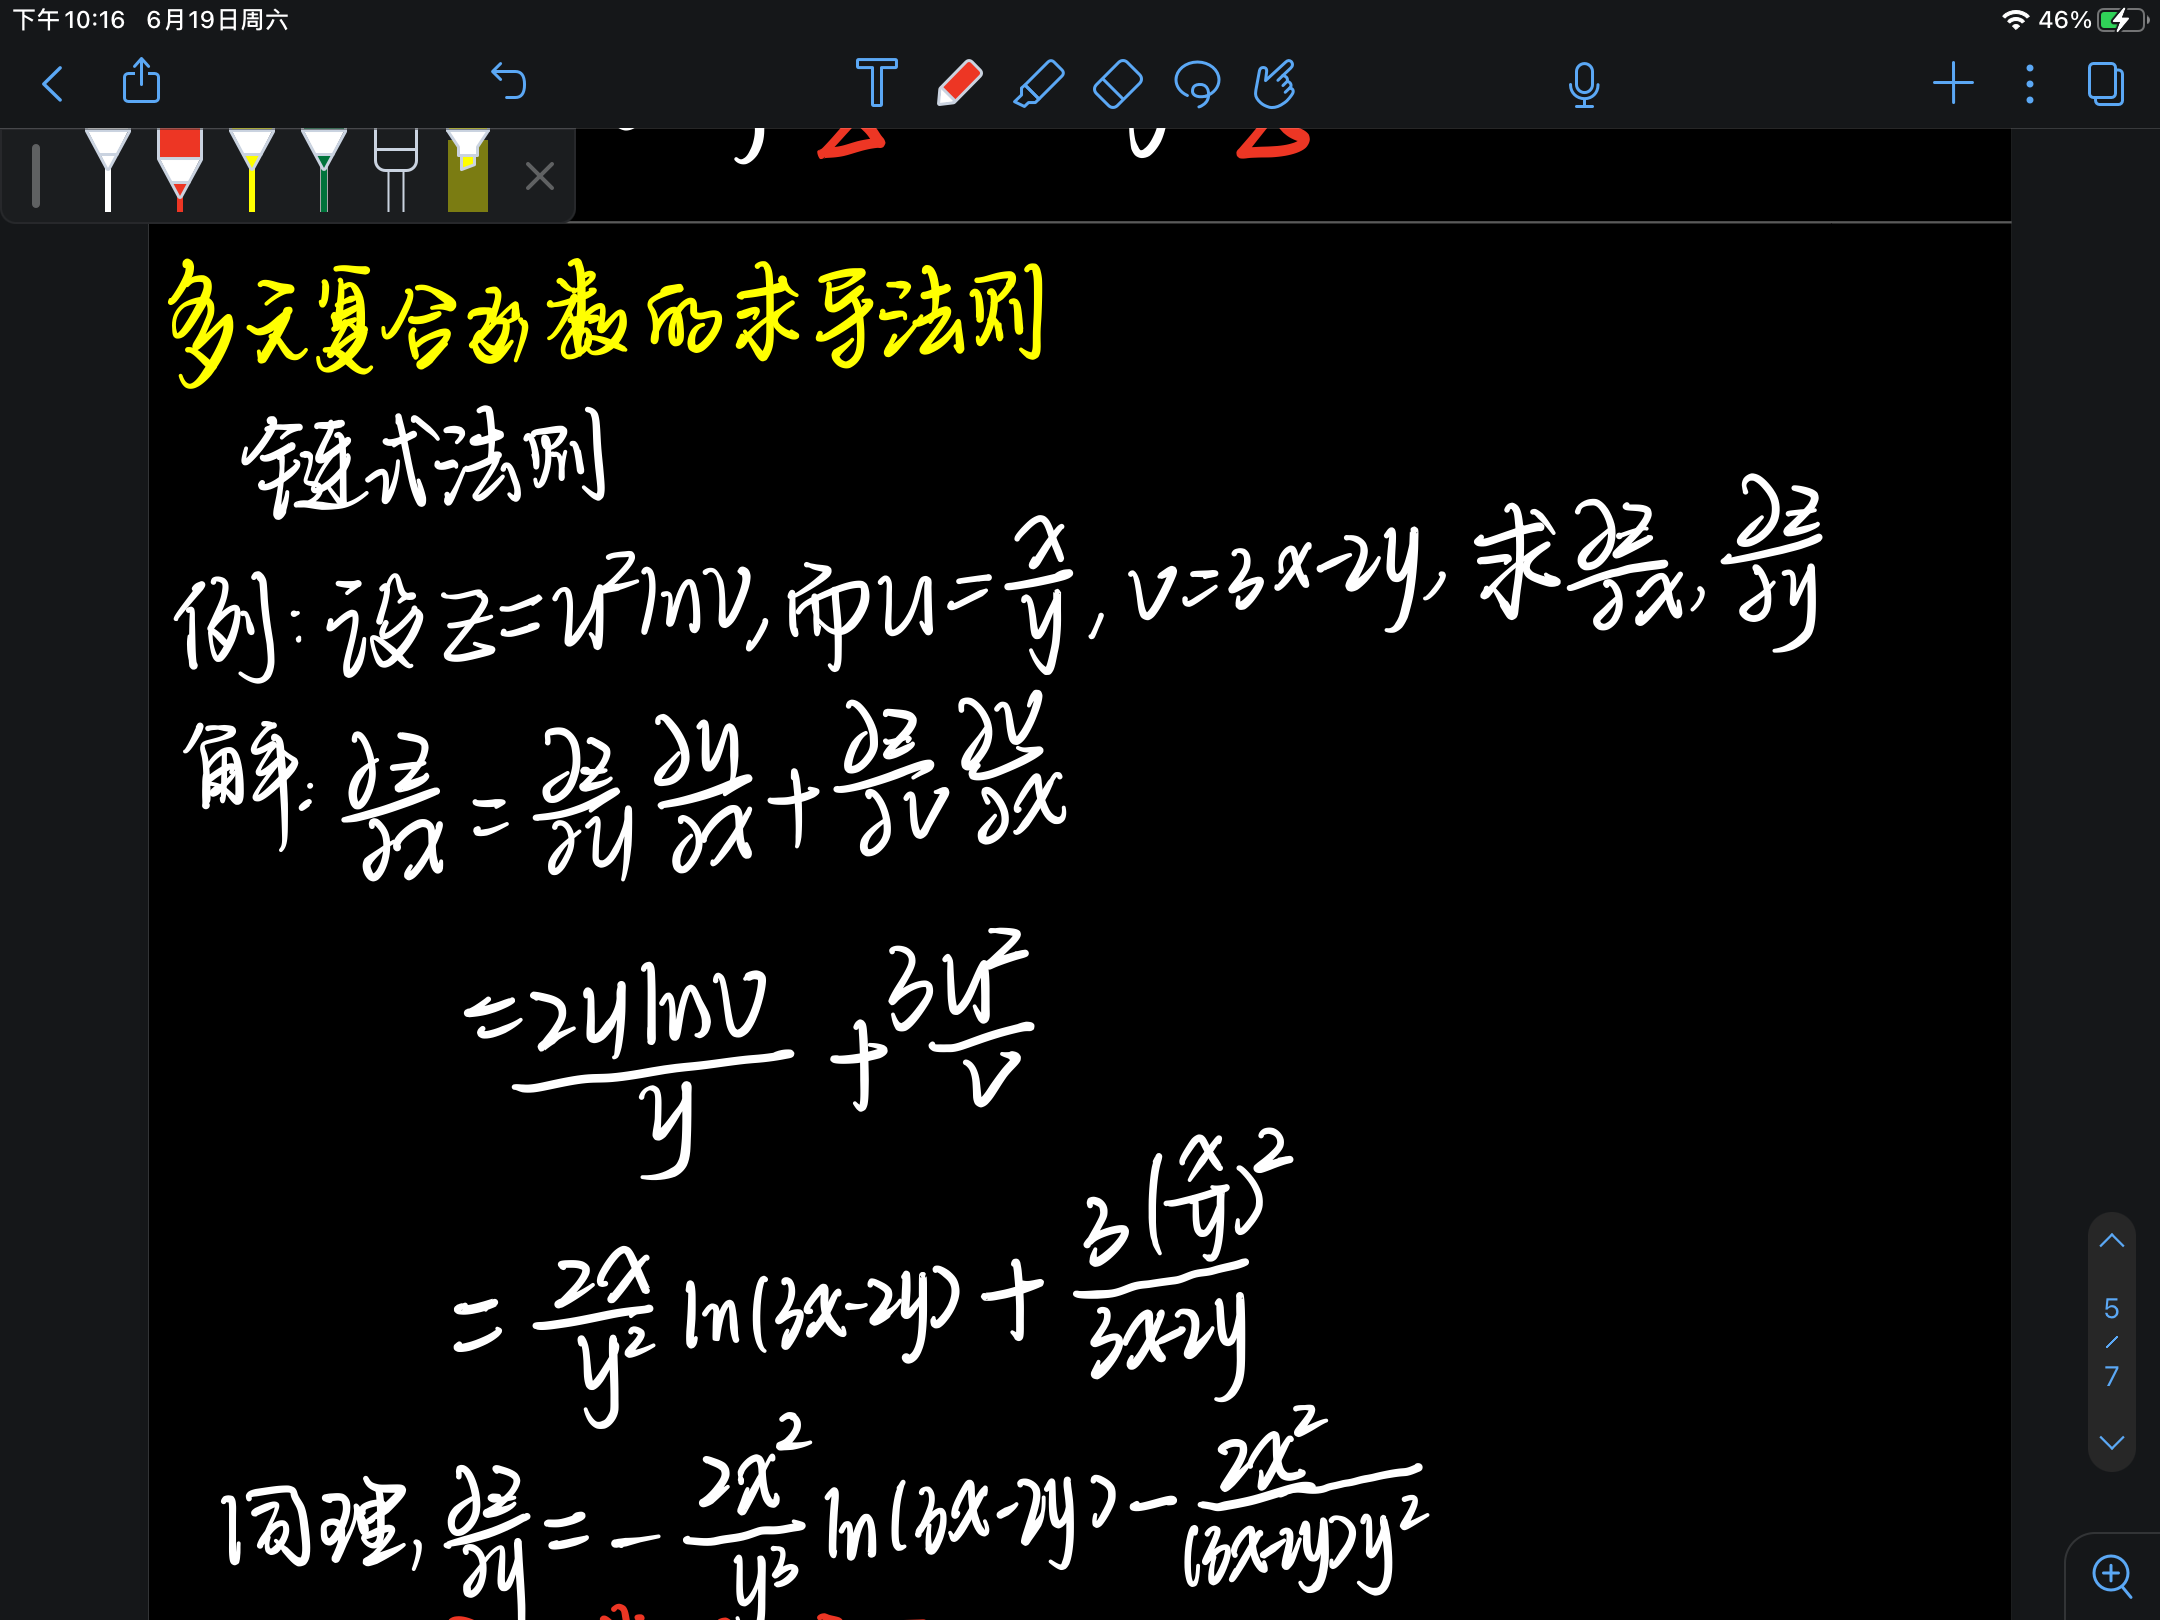 下午10:16 6月19日周六 46%
T
多元复合函数的求导法则
链式法则
例: 设 z = u² ln v, 而 u = x/y, v = 3x-2y, 求 ∂z/∂x, ∂z/∂y
解: ∂z/∂x = ∂z/∂u ∂u/∂x + ∂z/∂v ∂v/∂x
= 2u ln v / y + 3u²/v
= 2x/y² ln(3x-2y) + 3(x/y)²/3x-2y
同理, ∂z/∂y = - 2x²/y³ ln(3x-2y) - 2x²/(3x-2y)y²
5
/
7